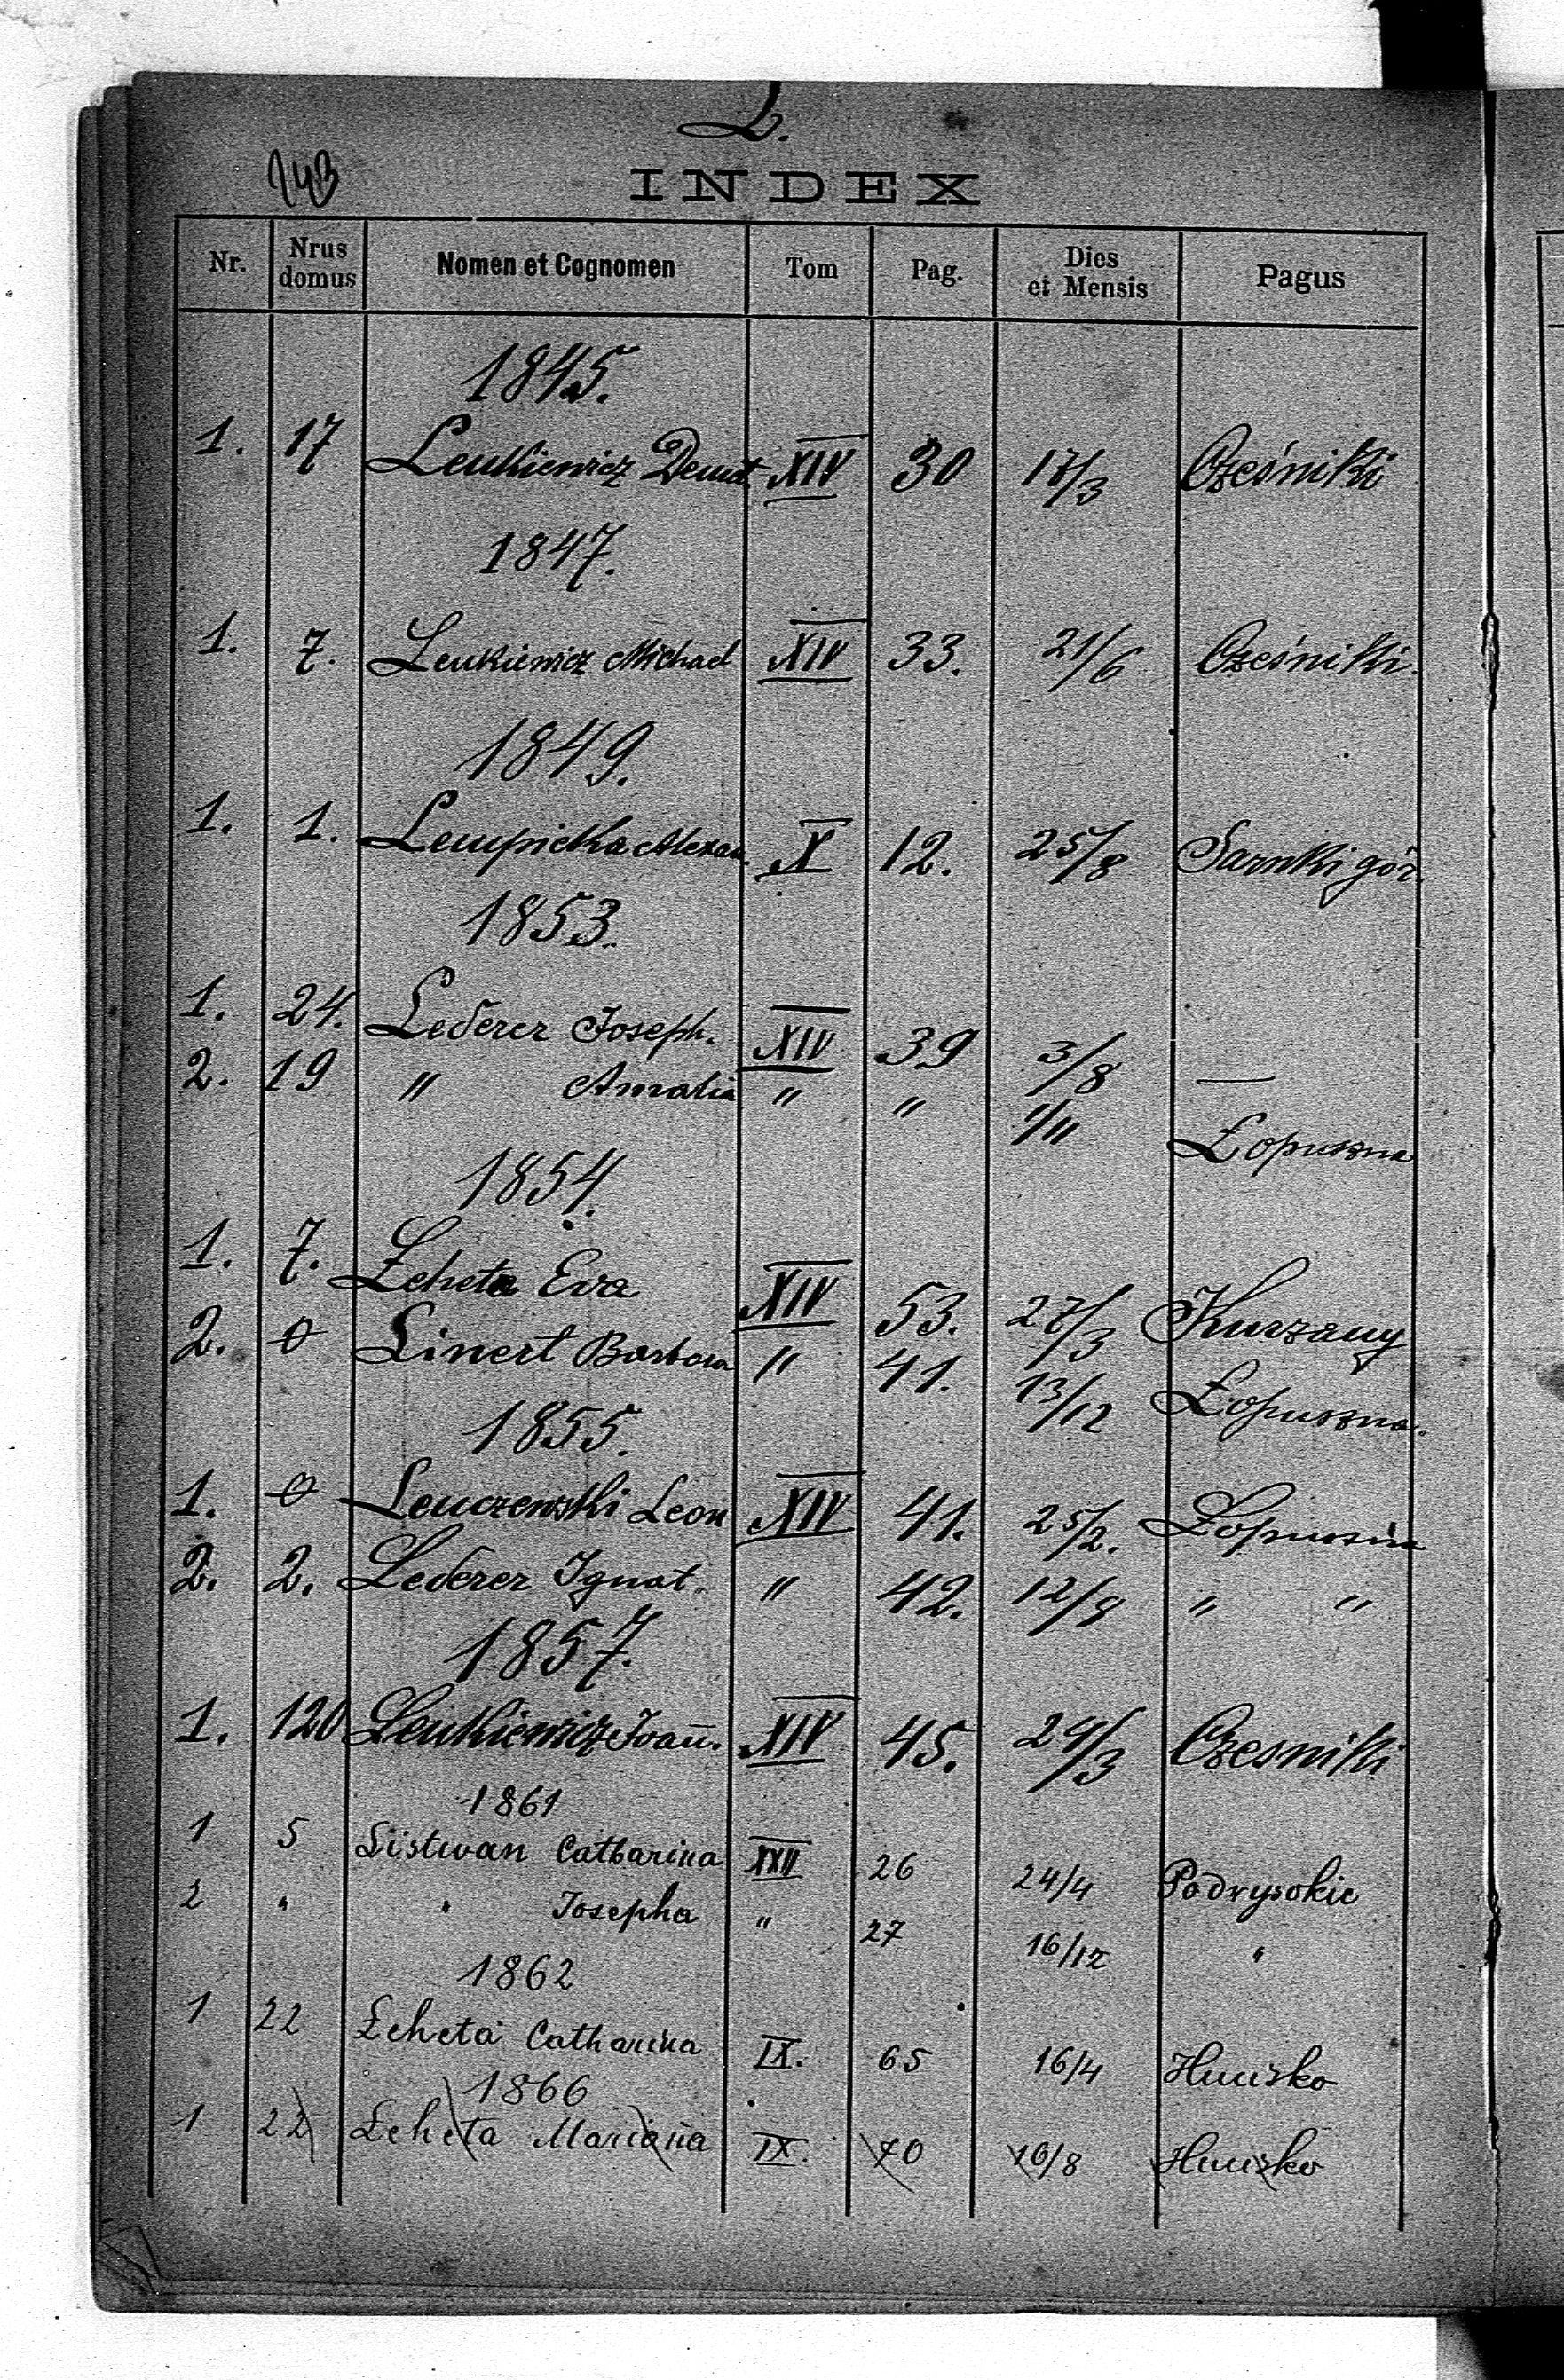 L.
143
INDEX
Nr. Nrus domus Nomen et Cognomen Tom Pag. Dies et Mensis Pagus
1845.
1. 17 Leukiewicz Demet. XIV 30 17/3 Cześniki
1847.
1. 7. Leukiewicz Michael XIV 33. 21/6 Cześniki.
1849.
1. 1. Lempicka Alexan. X 12. 25/8 Sarnki gór.
1853.
1. 24. Lederer Joseph. XIV 39 3/8 —
2. 19 " Amalia " " 1/11 Łopuszna
1854.
1. 7. Łeheta Eva XIV 53. 27/3 Kurzany
2. 0 Linert Barbara " 41. 13/12 Łopuszna.
1855.
1. 0 Leuczewski Leon XIV 41. 25/2. Łopuszna
2. 2. Lederer Ignat. " 42. 12/9 " "
1857.
1. 120 Leukiewicz Joañ. XIV 45. 24/3 Czesniki
1861
1 5 Listwan Catharina XXII 26 24/4 Podwysokie
2 " " Josepha " 27 16/12 "
1862
1 22 Łeheta Catharina IX. 65 16/4 Huusko
1866
1 22 Leheta Mariana IX. 70 16/8 Huusko